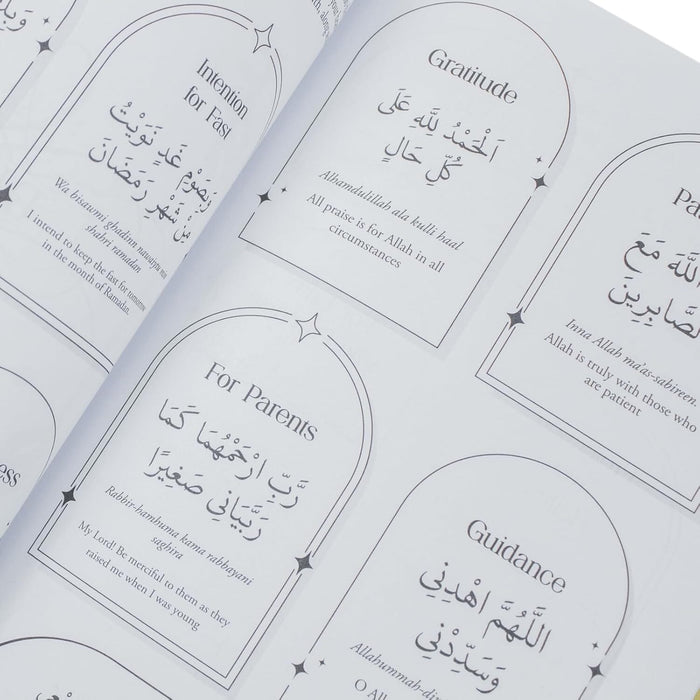 Intention
for Fast
وَبِصَوْمِ غَدٍ نَوَيْتُ
مِنْ شَهْرِ رَمَضَانَ
Wa bisawmi ghadinn nawaiytu min
shahri ramadan
I intend to keep the fast for tomorrow
in the month of Ramadin.
Gratitude
اَلْحَمْدُ لِلَّهِ عَلَى
كُلِّ حَالٍ
Alhamdulillah ala kulli haal
All praise is for Allah in all
circumstances
اللَّهَ مَعَ
الصَّابِرِينَ
Inna Allah ma'as-sabireen.
Allah is truly with those who
are patient
For Parents
رَبِّ ارْحَمْهُمَا كَمَا
رَبَّيَانِي صَغِيرًا
Rabbir-hamhuma kama rabbayani
saghira
My Lord! Be merciful to them as they
raised me when I was young
Guidance
اللَّهُمَّ اهْدِنِي
وَسَدِّدْنِي
Allahummah-din
O Alla